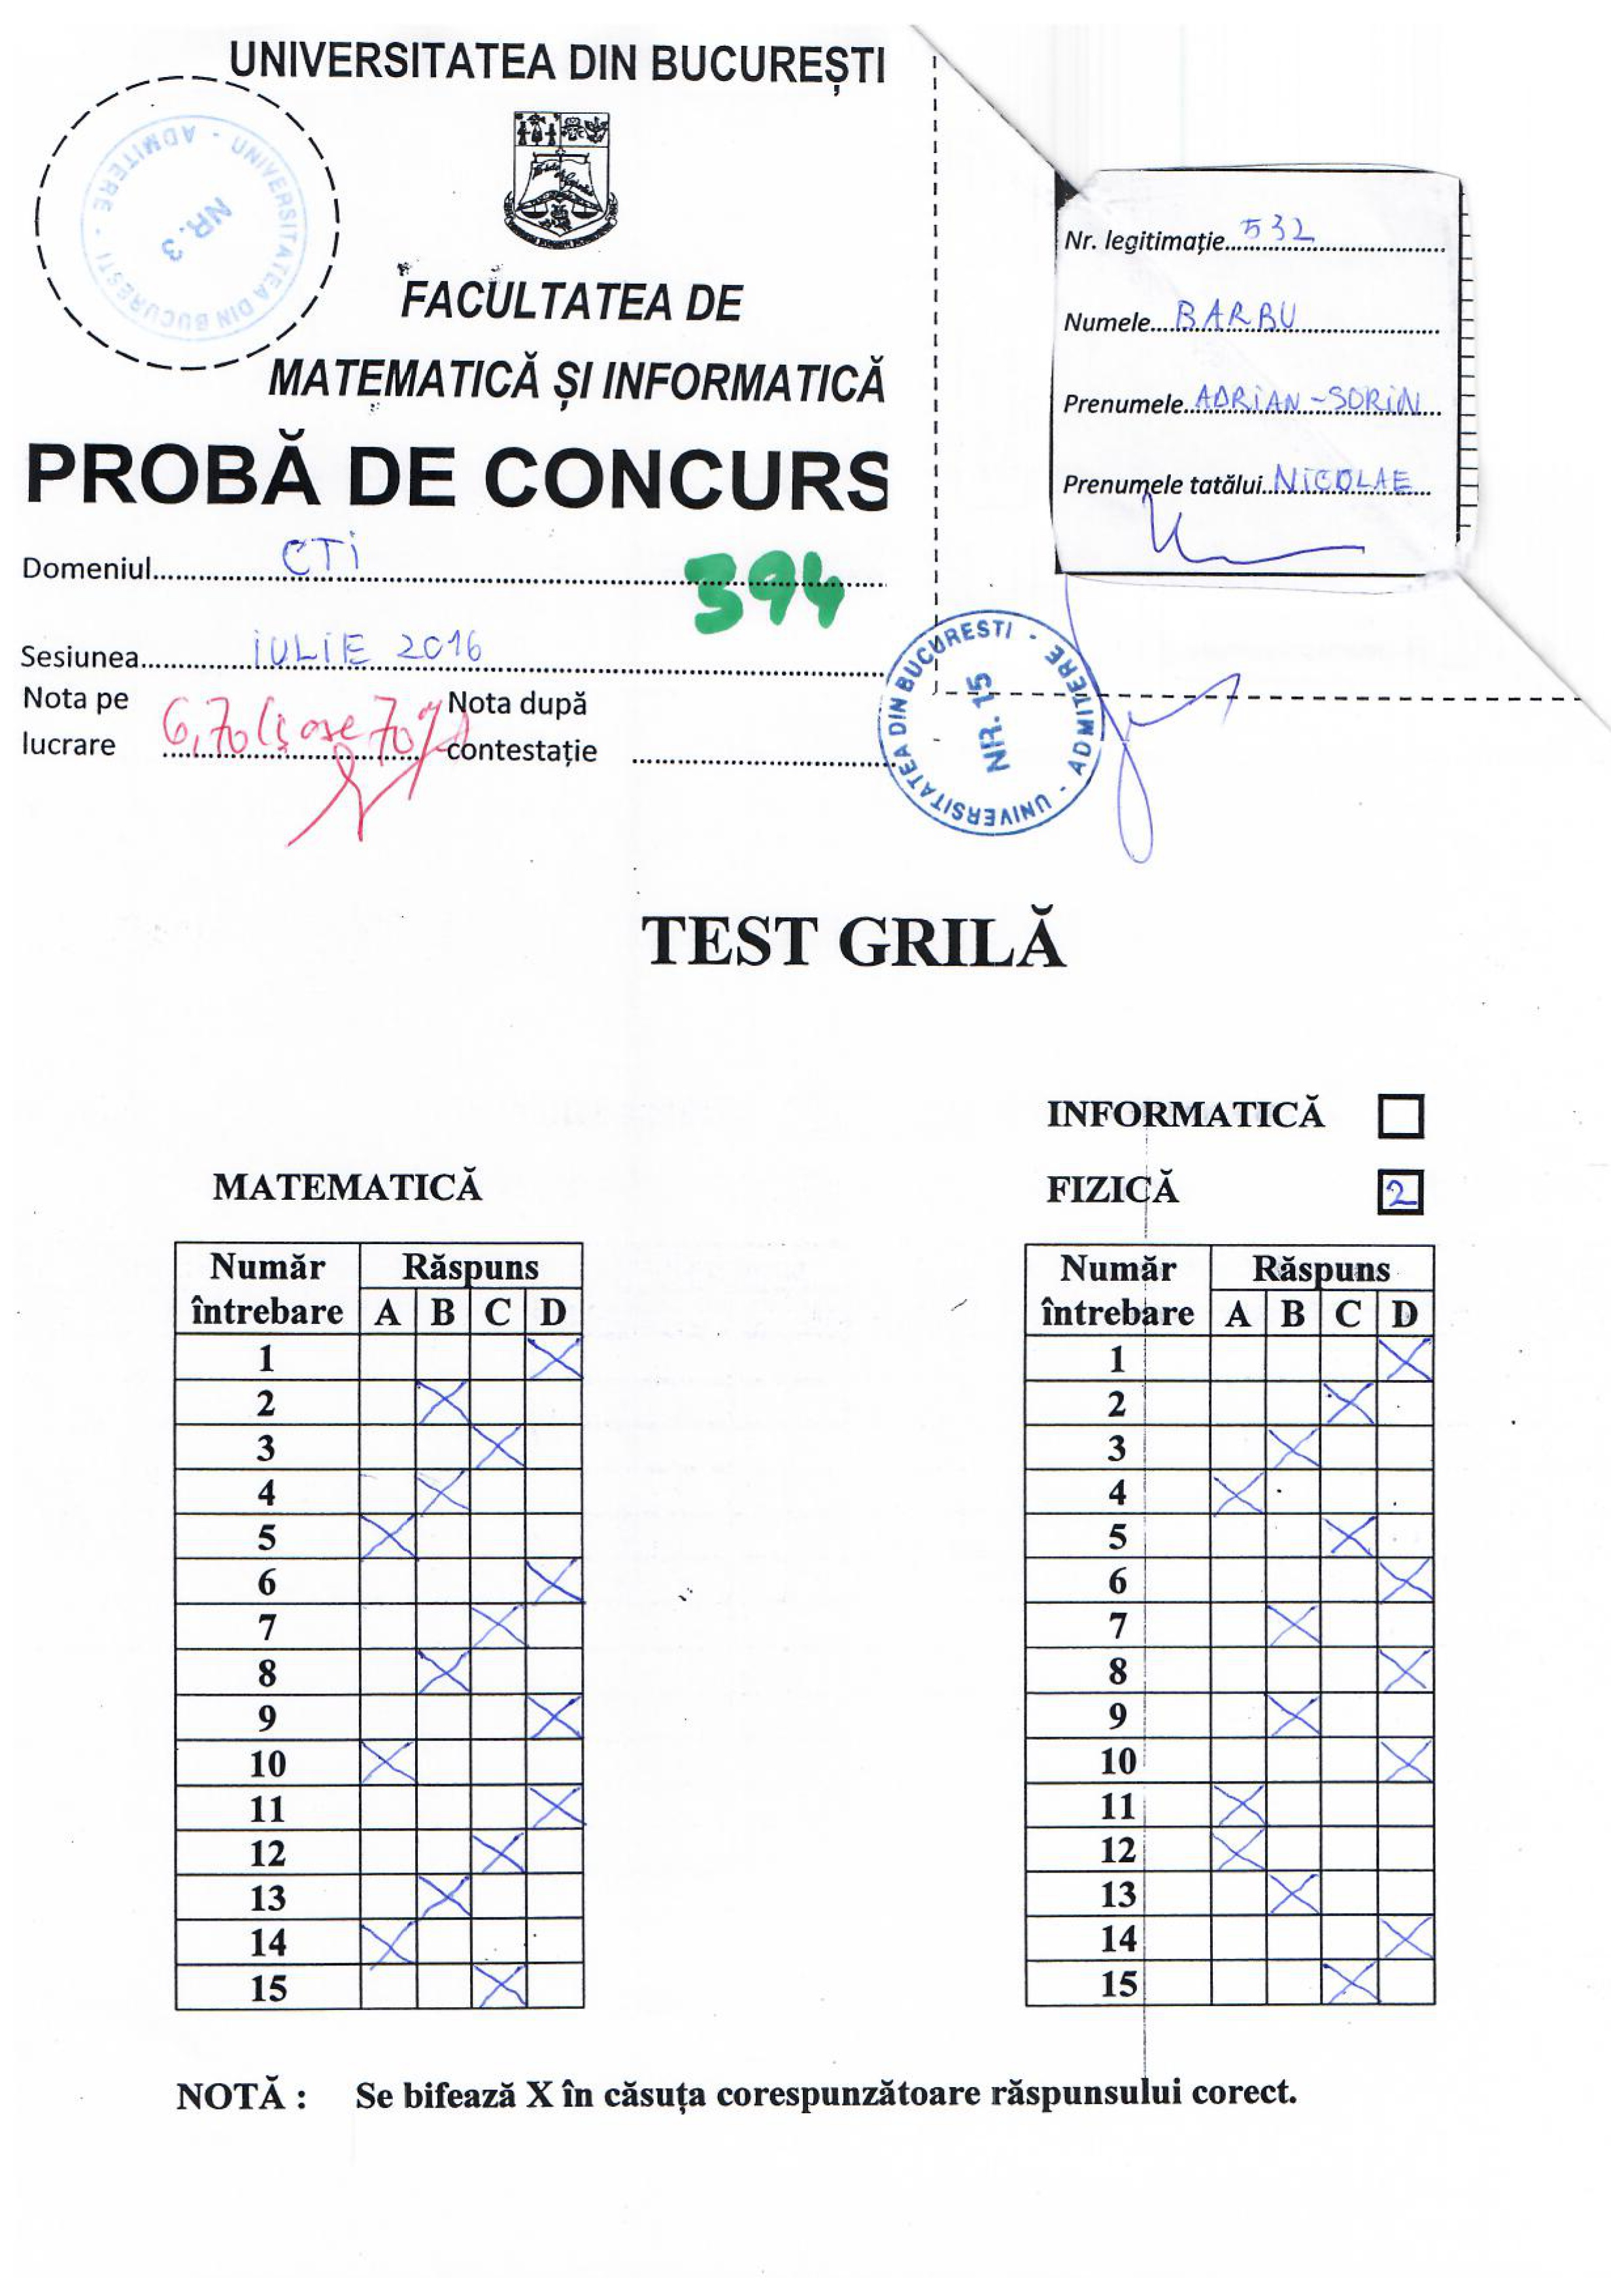 UNIVERSITATEA DIN BUCUREȘTI
UNIVERSITATEA DIN BUCURESTI - ADMITERE -
NR. 3
FACULTATEA DE
MATEMATICĂ ȘI INFORMATICĂ
PROBĂ DE CONCURS
Domeniul CTI
394
Sesiunea IULIE 2016
Nota pe lucrare 6,70 (șase 70%)
Nota după contestație
Nr. legitimație 532
Numele BARBU
Prenumele ADRIAN-SORIN
Prenumele tatălui NICOLAE
UNIVERSITATEA DIN BUCURESTI - ADMITERE -
NR. 15
TEST GRILĂ
INFORMATICĂ
MATEMATICĂ
FIZICĂ 2
Număr întrebare Răspuns
A B C D
1 X
2 X
3 X
4 X
5 X
6 X
7 X
8 X
9 X
10 X
11 X
12 X
13 X
14 X
15 X
Număr întrebare Răspuns
A B C D
1 X
2 X
3 X
4 X
5 X
6 X
7 X
8 X
9 X
10 X
11 X
12 X
13 X
14 X
15 X
NOTĂ : Se bifează X în căsuța corespunzătoare răspunsului corect.